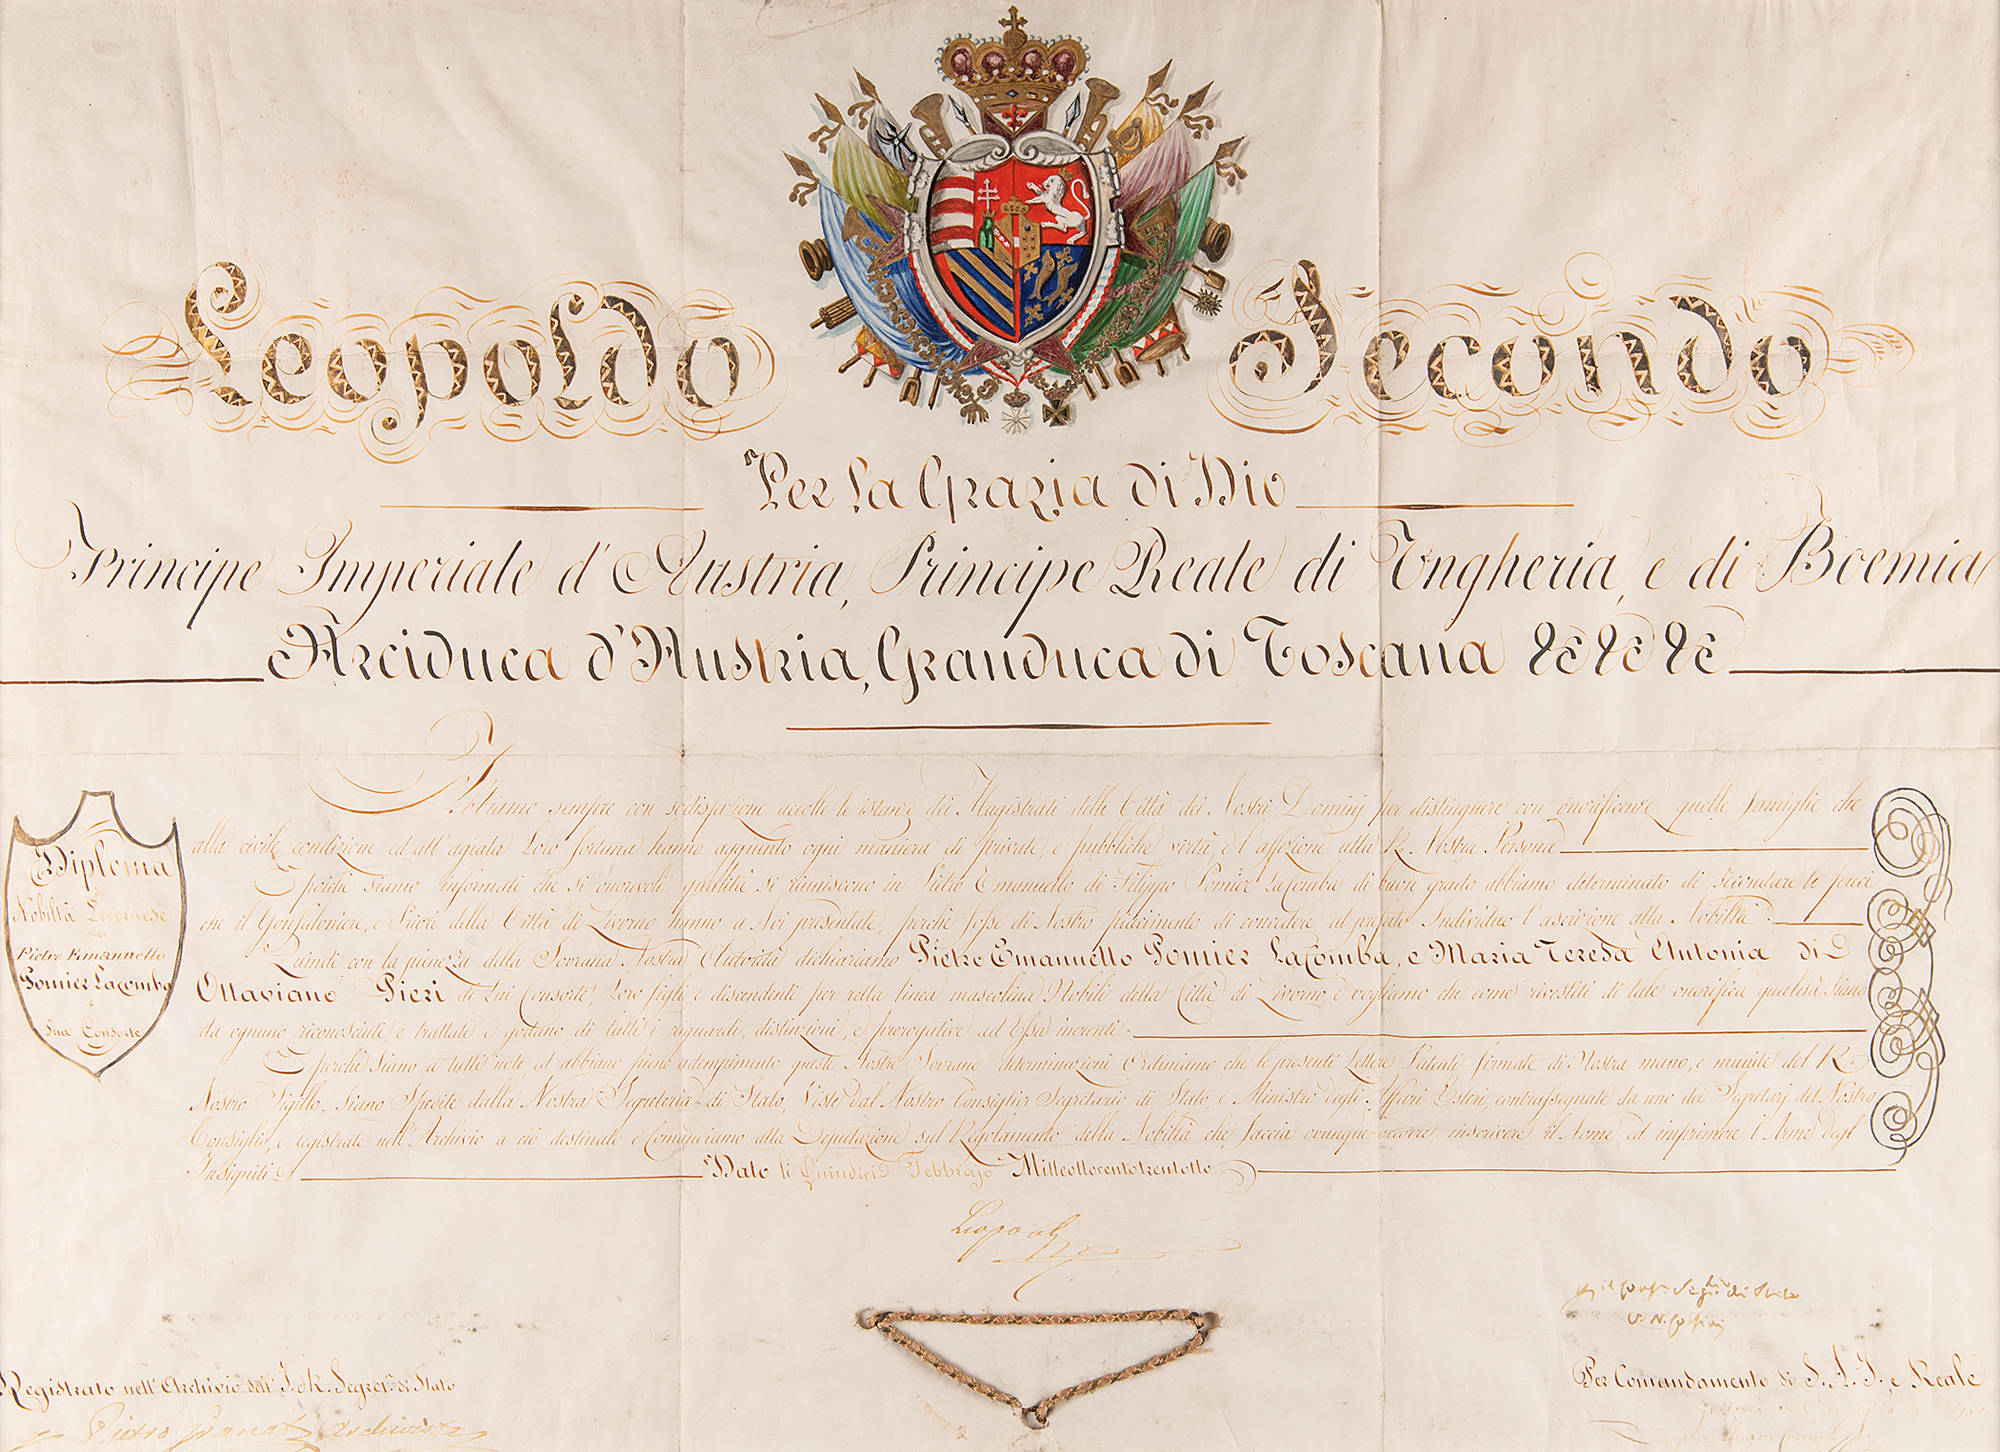 Leopoldo Secondo
Per La Grazia di Dio
Principe Imperiale d'Austria, Principe Reale di Ungheria, e di Boemia
Arciduca d'Austria, Granduca di Toscana &c &c &c
Abbiamo sempre con sodisfazione accolte le istanze dei Magistrati delle Città dei Nostri Dominj per distinguere con onorificenze quelle famiglie che
alla civile condizione, ed all'agiata Loro fortuna hanno aggiunto ogni maniera di private, e pubbliche virtù, e l'affezione alla R. Nostra Persona
E poichè siamo informati che si onorevoli qualità si riuniscono in Pietro Emanuello di Filippo Pomier LaComba di buon grado abbiamo determinato di secondare le preci
che il Gonfaloniere, e Priori della Città di Livorno hanno a Noi presentate, perchè fosse di Nostro piacimento di concedere al prefato Individuo l'ascrizione alla Nobiltà
Quindi con la pienezza della Sovrana Nostra Autorità dichiariamo Pietro Emanuello Pomier LaComba, e Maria Teresa Antonia di
Ottaviano Pieri di Lui Consorte, Loro figli, e discendenti per retta linea mascolina Nobili della Città di Livorno, e vogliamo che come rivestiti di tale onorifica qualità siano
da ognuno riconosciuti, e trattati e godano di tutti i riguardi, distinzioni, e prerogative ad Essa inerenti.
E perchè Siano a tutti note, ed abbiano pieno adempimento queste Nostre Sovrane determinazioni Ordiniamo che le presenti Lettere Patenti firmate di Nostra mano, e munite del R.
Nostro Sigillo, siano Spedite dalla Nostra Segreteria di Stato, Viste dal Nostro Consiglier Segretario di Stato, e Ministro degli Affari Esteri, contrassegnate da uno dei Segretarj del Nostro
Consiglio, e registrate nell'Archivio a ciò destinato, e Comandiamo alla Deputazione sul Regolamento della Nobiltà che faccia ovunque occorre, inscrivere il Nome, ed imprimere l'Arme degl'
Insigniti
Dato li Quindici Febbrajo Milleottocentotrentotto
Diploma
di
Nobiltà Livornese
per
Pietro Emanuello
Pomier LaComba
e
Sua Consorte
Leopoldo
Segr. di Stato
Registrato nell'Archivio dell'I. e R. Segret. di Stato
Pietro Granati Archivista
Per Comandamento di S. A. I. e Reale